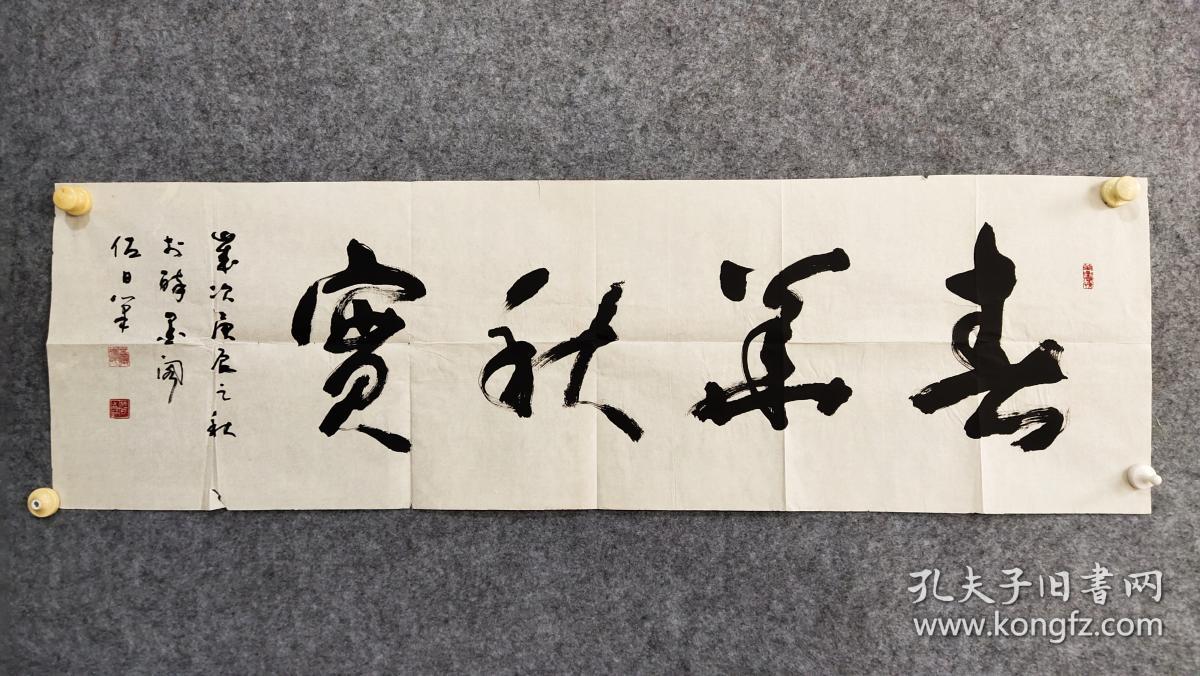 春華秋實
歲次庚辰之秋
於醉墨閣
伍日軍
孔夫子旧書网
www.kongfz.com